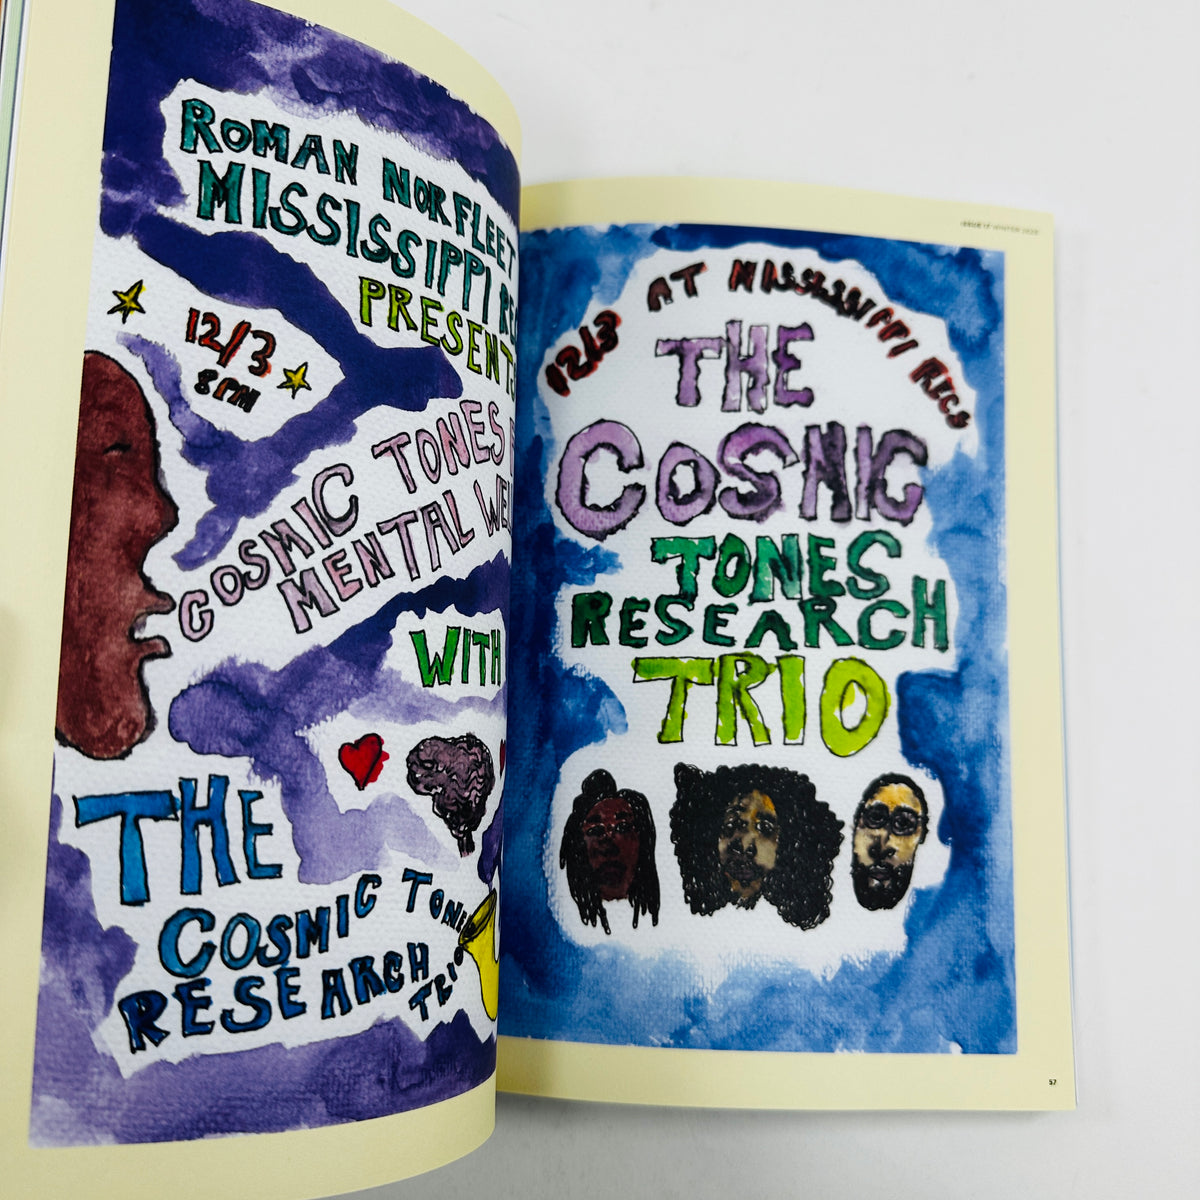 ROMAN NORFLEET
MISSISSIPPI
PRESENTS
12/3
8 PM
COSMIC TONES
MENTAL
WITH
THE
COSMIC TONES
RESEARCH
TRIO
ISSUE 17 WINTER 2025
12/3 AT MISSISSIPPI RECS
THE
COSMIC
TONES
RESEARCH
TRIO
57